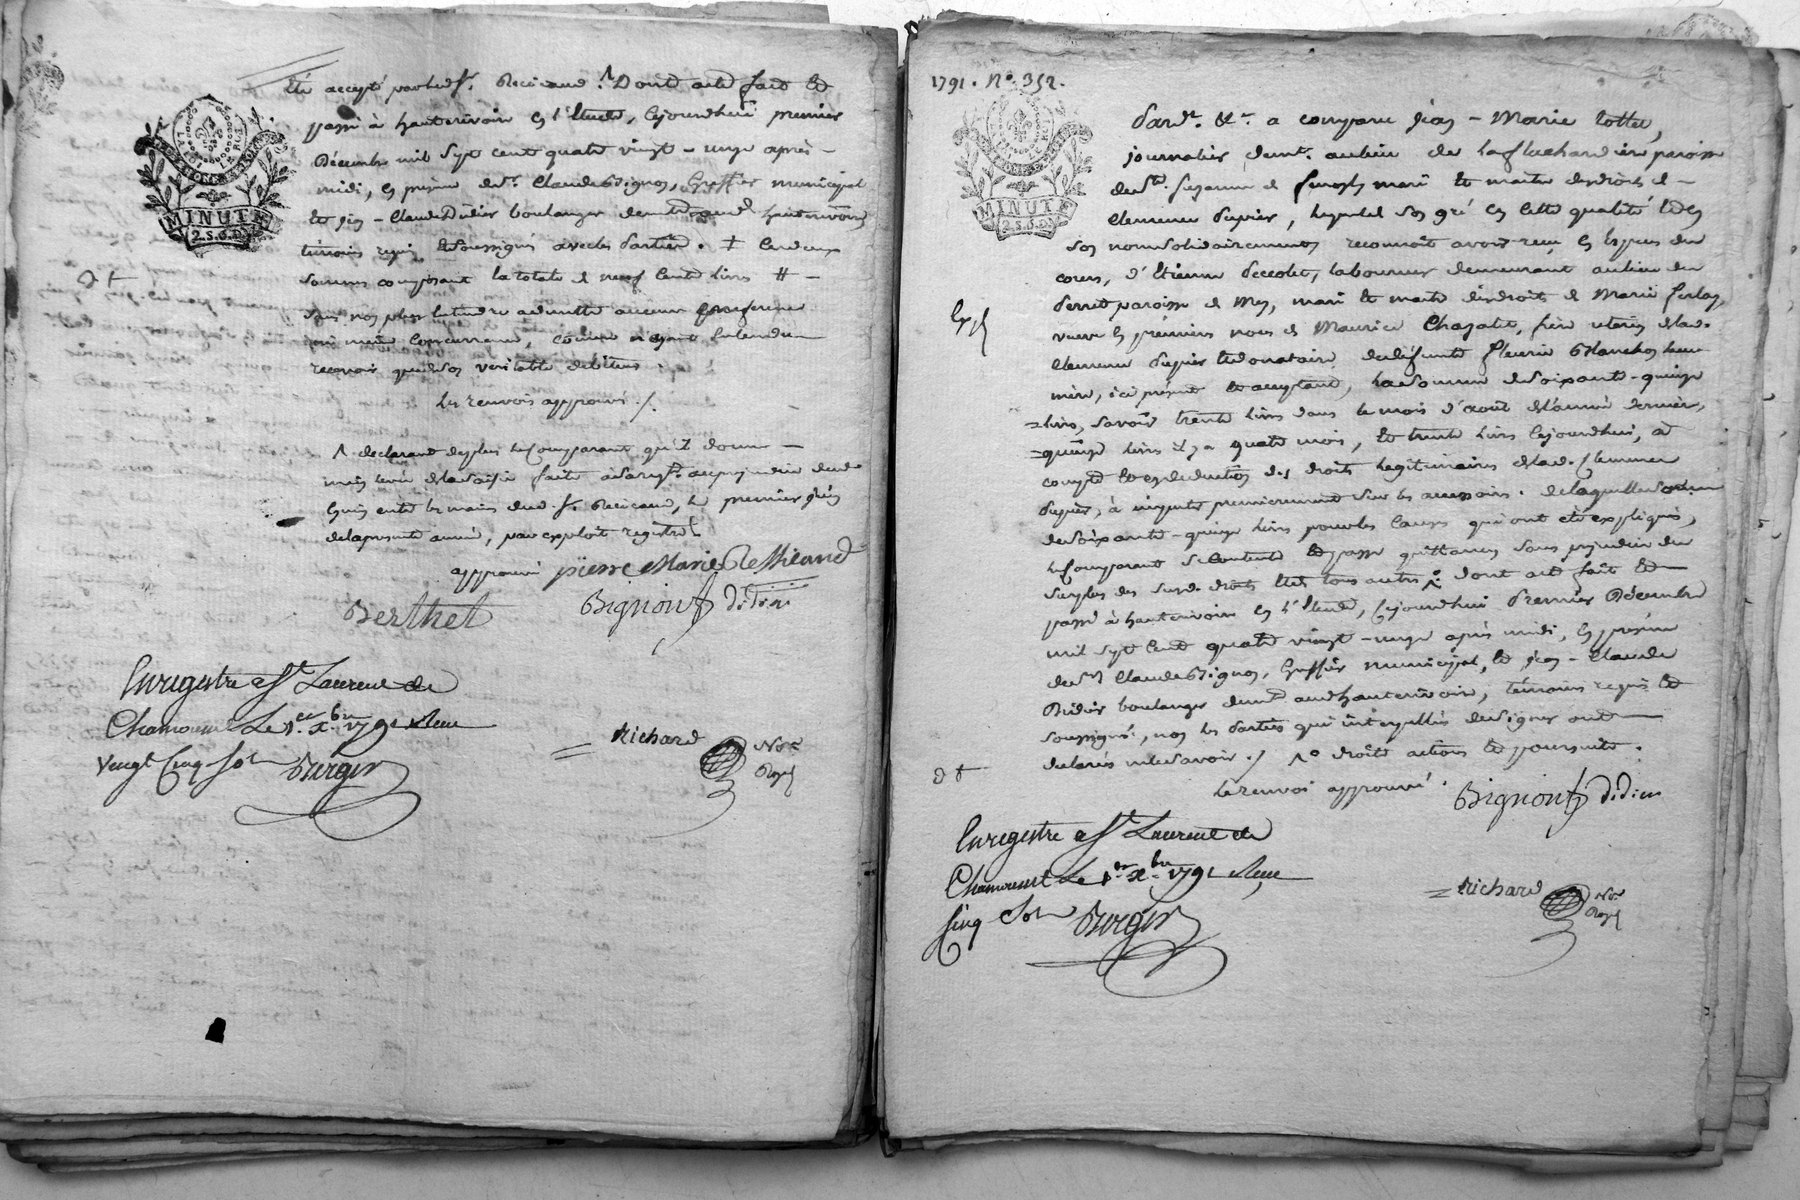 été accepté par led. Sr. Dont acte fait et
passé à hauterivoire en l'Etude, cejourdhui premier
Décembre mil sept cent quatre vingt-onze après-
midi, en présence de Sr. Claude Bignon, Greffier municipal
et Jean-Claude Didier boulanger demt. hauterivoire,
témoins requis et soussignés avec les parties. ‡ Les deux
sommes composant la totale de neuf cents livres #-
recevoir que de son véritable débiteur.
Les renvois approuvés ./.
déclarant de plus le Comparant qu'il donne-
main levée de la saisie faite
es mains dud. Sr. le premier juin
de la presente année, par exploit registré
approuvé pierre Marie
Berthet Bignon Gr didier
MINUTE
2.S.6.D.
Enregistré a St. Laurent de
Chamousset Le 1er. Xbre 1791 Reçu
Vengt Cinq Sols Berger
Richard Nore.
Royl
1791. No. 352.
MINUTE
2.S.6.D.
Pardt. &a. a comparu Jean-Marie
journalier demt. au lieu de paroisse
de Ste. mari et maitre des droits de-
Clemence Dupier, lequel de son gré en cette qualité et en
son nom solidairement, reconnoît avoir reçu en espèces du
cours, d'Etienne laboureur demeurant au lieu du
Perret paroisse de Mey, mari et maitre des droits de Marie
veuve en premières noces de Maurice Chazalet, frère utérin de lad.
Clemence Dupier et donataire de la défunte Fleurie Blanchon leur
mère, ici présent et acceptant, la somme de soixante-quinze
livres, savoir trente livres dans le mois d'août de l'année dernière,
quinze livres il y a quatre mois, et trente livres cejourdhui, à
compte et en déduction des droits légitimaires de lad. Clemence
Dupier, à imputer premièrement sur les accessoires. de laquelle somme
de soixante-quinze livres pour les causes qui ont été expliquées,
le Comparant se contente et passe quittance sans préjudice du
surplus des susd. droits et de tous autres dont acte fait et
passé à hauterivoire en l'Etude, cejourdhui Premier Décembre
mil sept cent quatre vingt-onze après midi, en présence
de Sr. Claude Bignon, Greffier municipal, et Jean-Claude
Didier boulanger demt. aud. hauterivoire, témoins requis et
soussignés, non les parties qui interpellées de signer ont
déclaré ne le savoir ./. droits actions et poursuites.
Le renvoi approuvé. Bignon Gr didier
Enregistré a St. Laurent de
Chamousset Le 1er. Xbre 1791 Reçu
Cinq Sols Berger
Richard Nore.
Royl